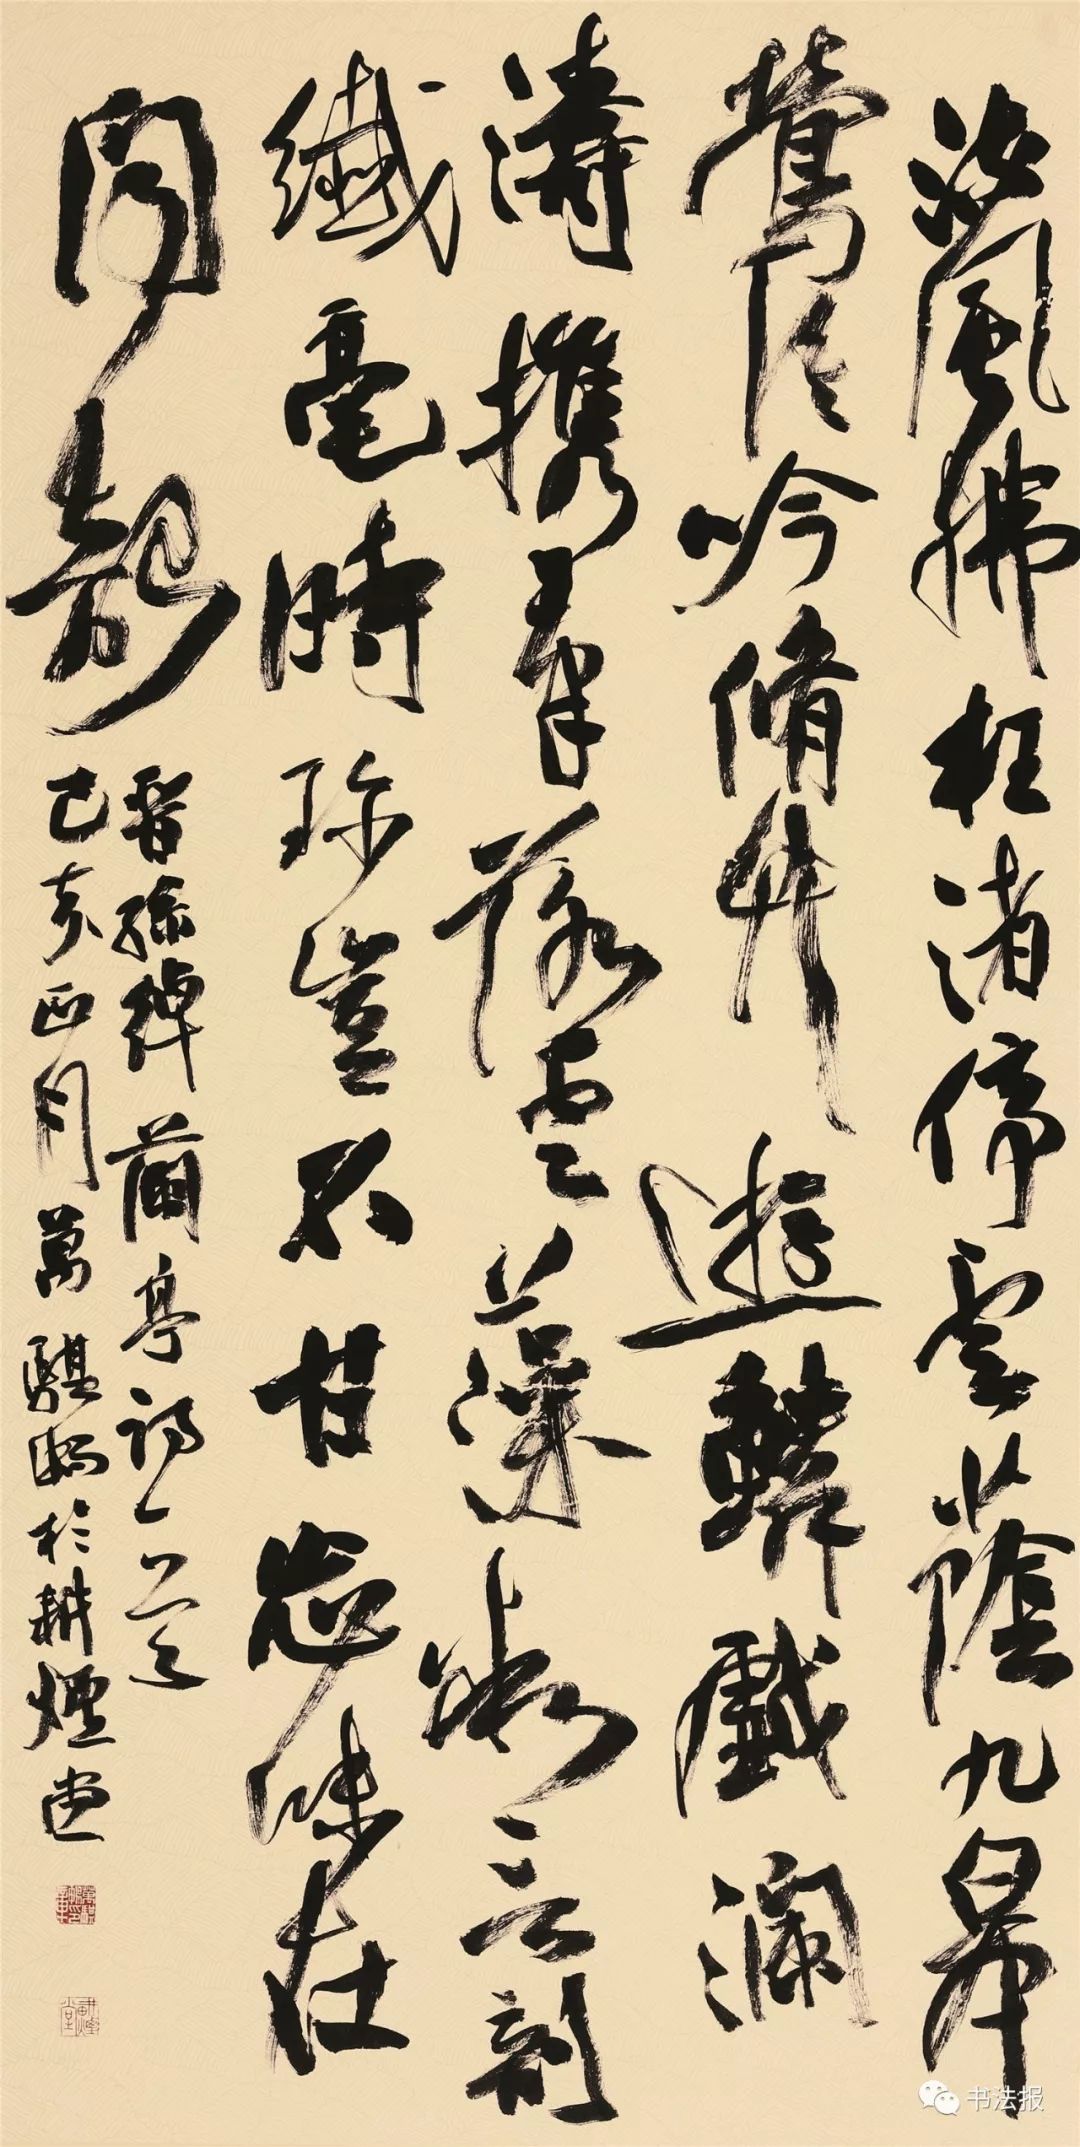 流風拂枉渚停雲蔭九皋
鶯語吟脩竹遊鱗戲瀾
濤攜筆落雲藻微言剖
纖毫時珍豈不甘忘味在
聞韶
晉孫綽蘭亭詩一首
己亥正月萬於耕煙堂
书法报